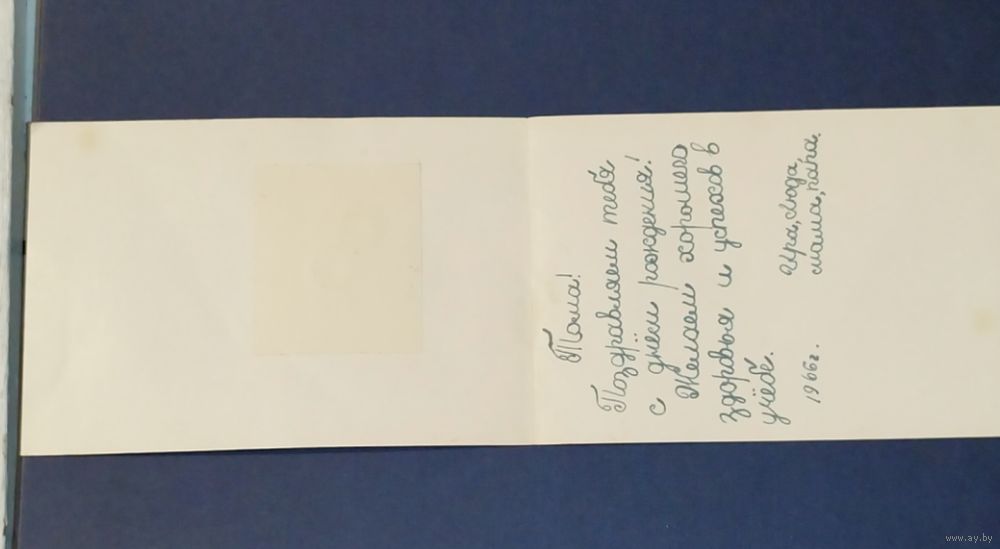 Тома!
Поздравляем тебя
с днём рождения!
Желаем хорошего
здоровья и успехов в
учёбе.
Ира, Люда,
1966г. мама, папа.
www.ay.by